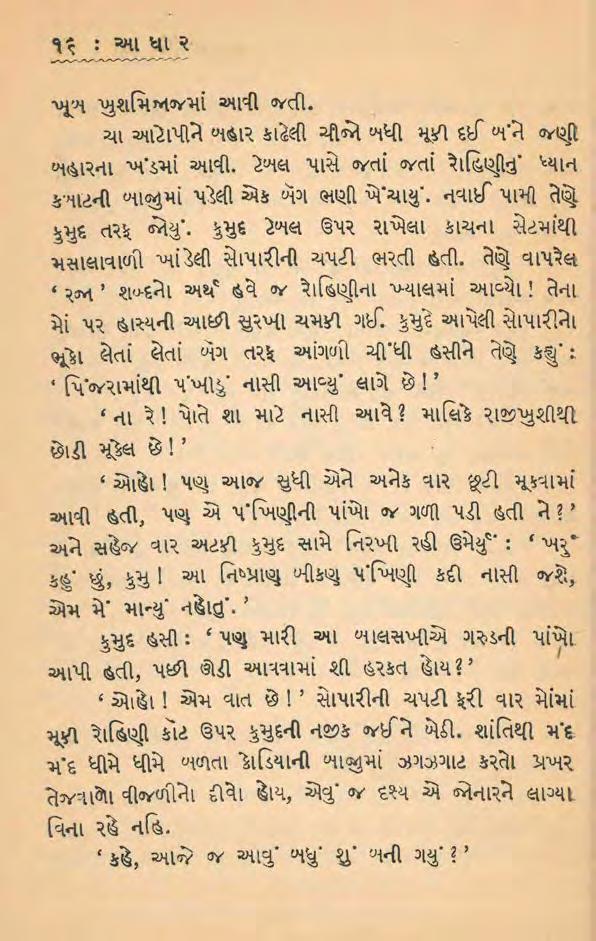 ૧૬ : આ ધા ર
ખૂબ ખુશમિજાજમાં આવી જતી.
ચા આટોપીને બહાર કાઢેલી ચીજો બધી મૂકી દઈ બંને જણી
બહારના ખંડમાં આવી. ટેબલ પાસે જતાં જતાં રોહિણીનું ધ્યાન
કબાટની બાજુમાં પડેલી એક બૅગ ભણી ખેંચાયું. નવાઈ પામી તેણે
કુમુદ તરફ જોયું. કુમુદ ટેબલ ઉપર રાખેલા કાચના સેટમાંથી
મસાલાવાળી ખાંડેલી સોપારીની ચપટી ભરતી હતી. તેણે વાપરેલ
‘ રજા ’ શબ્દનો અર્થ હવે જ રોહિણીના ખ્યાલમાં આવ્યો! તેના
મોં પર હાસ્યની આછી સુરખી ચમકી ગઈ. કુમુદે આપેલી સોપારીનો
ભૂકો લેતાં લેતાં બૅગ તરફ આંગળી ચીંધી હસીને તેણે કહ્યું :
‘ પિંજરામાંથી પંખીડું નાસી આવ્યું લાગે છે!’
‘ ના રે! પોતે શા માટે નાસી આવે? માલિકે રાજીખુશીથી
છોડી મૂકેલ છે!’
‘ ઓહો! પણ આજ સુધી એને અનેક વાર છૂટી મૂકવામાં
આવી હતી, પણ એ પંખિણીની પાંખો જ ગળી પડી હતી ને?’
અને સહેજ વાર અટકી કુમુદ સામે નિરખી રહી ઉમેર્યું : ‘ ખરું
કહું છું, કુમુ! આ નિષ્પ્રાણ બીકણ પંખિણી કદી નાસી જશે,
એમ મેં માન્યું નહોતું.’
કુમુદ હસી : ‘ પણ મારી આ બાલસખીએ ગરુડની પાંખો
આપી હતી, પછી ઊડી આવવામાં શી હરકત હોય?’
‘ ઓહો! એમ વાત છે!’ સોપારીની ચપટી ફરી વાર મોંમાં
મૂકી રોહિણી કૉટ ઉપર કુમુદની નજીક જઈને બેઠી. શાંતિથી મંદ
મંદ ધીમે ધીમે બળતા કોડિયાની બાજુમાં ઝગઝગાટ કરતો પ્રખર
તેજવાળો વીજળીનો દીવો હોય, એવું જ દૃશ્ય એ જોનારને લાગ્યા
વિના રહે નહિ.
‘ કહે, આજે જ આવું બધું શું બની ગયું?’